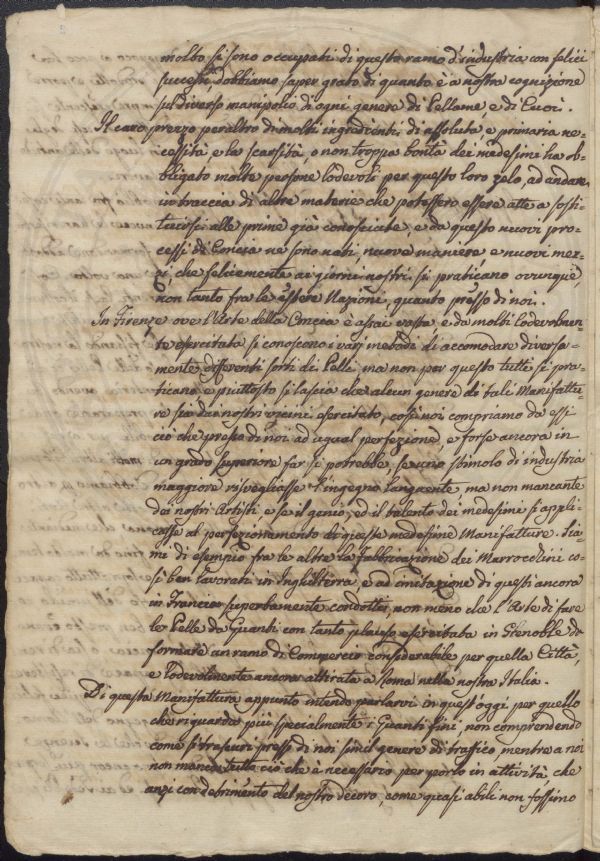 molto si sono occupati di questo ramo d'industria con felici
successi dobbiamo saper grado di quanto è a nostra cognizione
sul diverso manipolio di ogni genere di Pellame, e di Cuoi.
Il caro prezzo peraltro di molti ingredienti di assoluta, e primaria ne-
cessità e la scarsità, o non troppa bontà dei medesimi ha ob-
bligato molte persone lodevoli per questo loro zelo, ad andare
in traccia di altre materie che potessero essere atte a sosti-
tuirsi alle prime già conosciute, e da questo nuovi pro-
cessi di Concia ne sono nati, nuove maniere, e nuovi mez-
zi, che felicemente ai giorni nostri si praticano ovunque,
non tanto fra le Estere Nazioni, quanto presso di noi.
In Firenze ove l'Arte della Concia è assai vasta, e da molti lodevolmen-
te esercitata si conoscono i varj metodi di accomodare diversa-
mente differenti sorti di Pelli, ma non per questo tutte si pra-
ticano, e piuttosto si lascia che alcun genere di tali Manifattu-
re sia dai nostri vicini esercitato, così noi compriamo da essi
ciò che presso di noi ad ugual perfezione, e forse ancora in
un grado superiore far si potrebbe, se uno stimolo di industria
maggiore risvegliasse l'ingegno languente ma non mancante
dei nostri Artisti e se il genio, ed il talento dei medesimi si appli-
casse al perfezionamento di queste medesime Manifatture. Sia-
mi di esempio fra le altre la fabbricazione dei Marrocchini co-
sì ben lavorati in Inghilterra, e ad imitazione di questi ancora
in Francia superbamente condotti, non meno che l'Arte di fare
le Pelle da Guanti con tanto plauso esercitata in Grenoble da
formare un ramo di Commercio considerabile per quella Città,
e lodevolmente ancora attirata a Roma nella nostra Italia.
Di questa Manifattura appunto intendo parlarvi in quest'oggi per quello
che riguarda più specialmente i Guanti fini, non comprendendo
come si trascuri presso di noi simil genere di trafico, mentre a noi
non manca tutto ciò che è necessario per porlo in attività, che
anzi con detrimento del nostro decoro, come quasi abili non fossimo